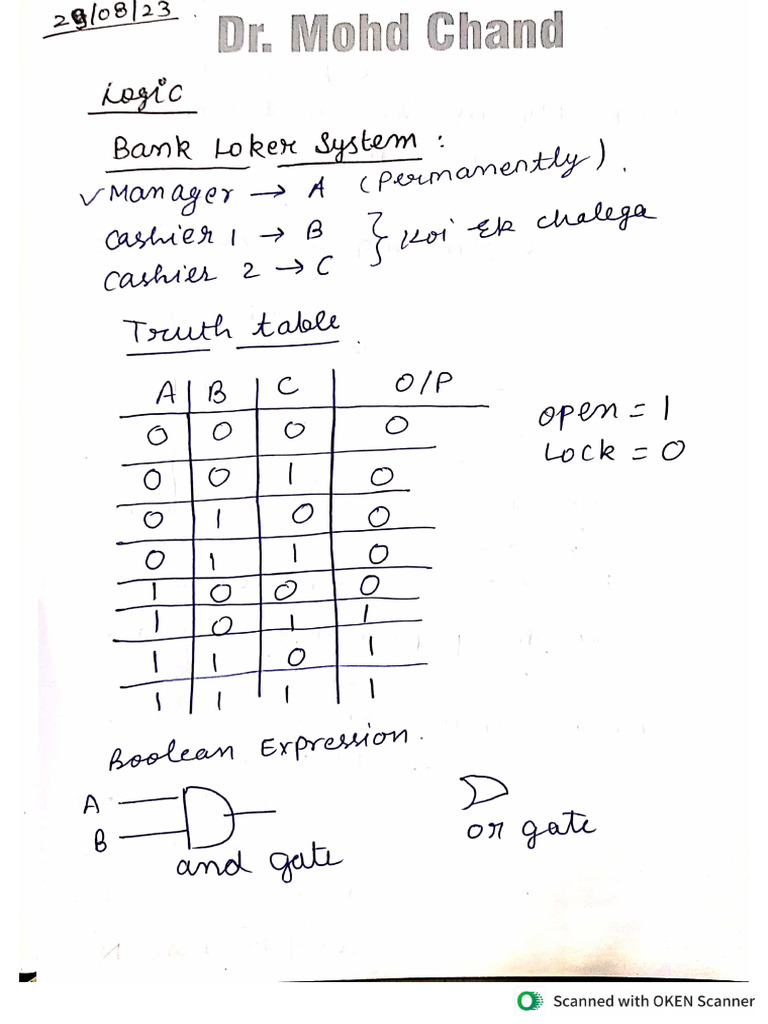 29/08/23
Dr. Mohd Chand
Logic
Bank Loker System :
✓ Manager → A (Permanently).
Cashier 1 → B } Koi Ek chalega
Cashier 2 → C
Truth table
A B C O/P
0 0 0 0
0 0 1 0
0 1 0 0
0 1 1 0
1 0 0 0
1 0 1 1
1 1 0 1
1 1 1 1
open = 1
Lock = 0
Boolean Expression.
A
B
and gate
or gate
Scanned with OKEN Scanner